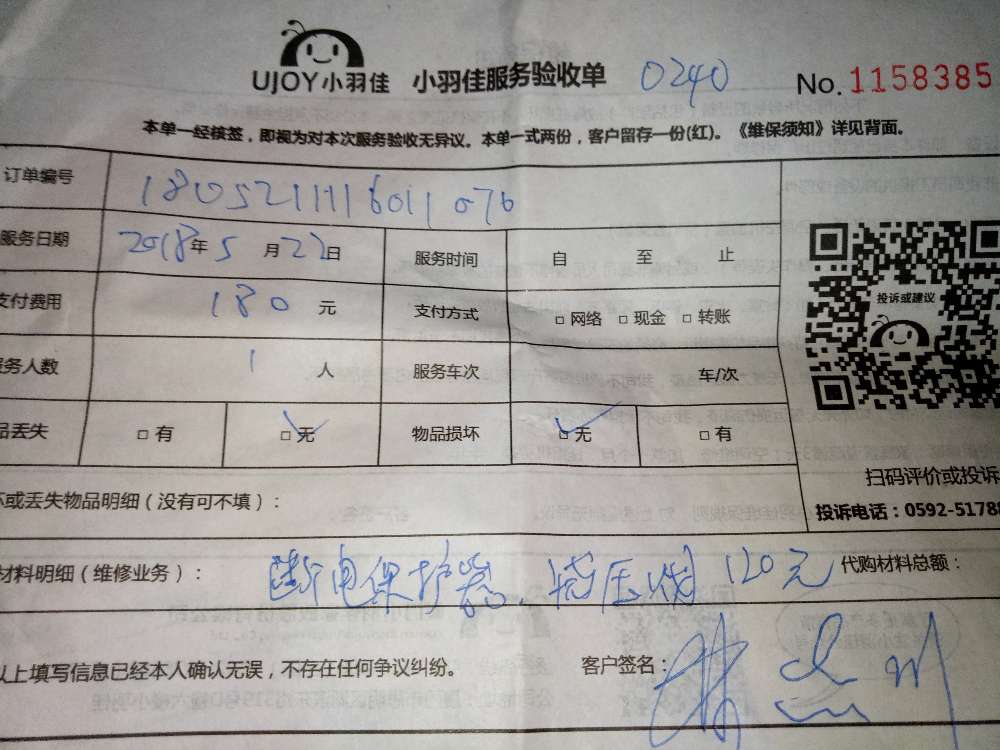 UJOY小羽佳 小羽佳服务验收单 0240 No.1158385
本单一经核签，即视为对本次服务验收无异议。本单一式两份，客户留存一份(红)。《维保须知》详见背面。
订单编号 1805211116011076
服务日期 2018年5月22日 服务时间 自 至 止
支付费用 180元 支付方式 □网络 □现金 □转账
服务人数 1人 服务车次 车/次
品丢失 □有 □无 物品损坏 □无 □有
投诉或建议
扫码评价或投诉
坏或丢失物品明细（没有可不填）：
投诉电话：0592-51788
材料明细（维修业务）： 断电保护器、高压线120元 代购材料总额：
以上填写信息已经本人确认无误，不存在任何争议纠纷。 客户签名：